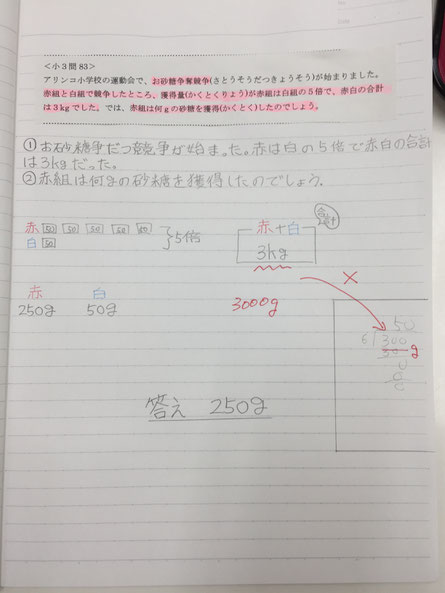 <小3問83>
アリンコ小学校の運動会で、お砂糖争奪競争(さとうそうだつきょうそう)が始まりました。
赤組と白組で競争したところ、獲得量(かくとくりょう)が赤組は白組の5倍で、赤白の合計
は3kgでした。では、赤組は何gの砂糖を獲得(かくとく)したのでしょう。
①お砂糖争だつ競争が始まった。赤は白の5倍で赤白の合計
は3kgだった。
②赤組は何gの砂糖を獲得したのでしょう.
赤 50 50 50 50 50
白 50
5倍
合計
赤+白
3kg
赤 白
250g 50g
3000g
×
50
6)300
30 g
0
0
0
答え 250g